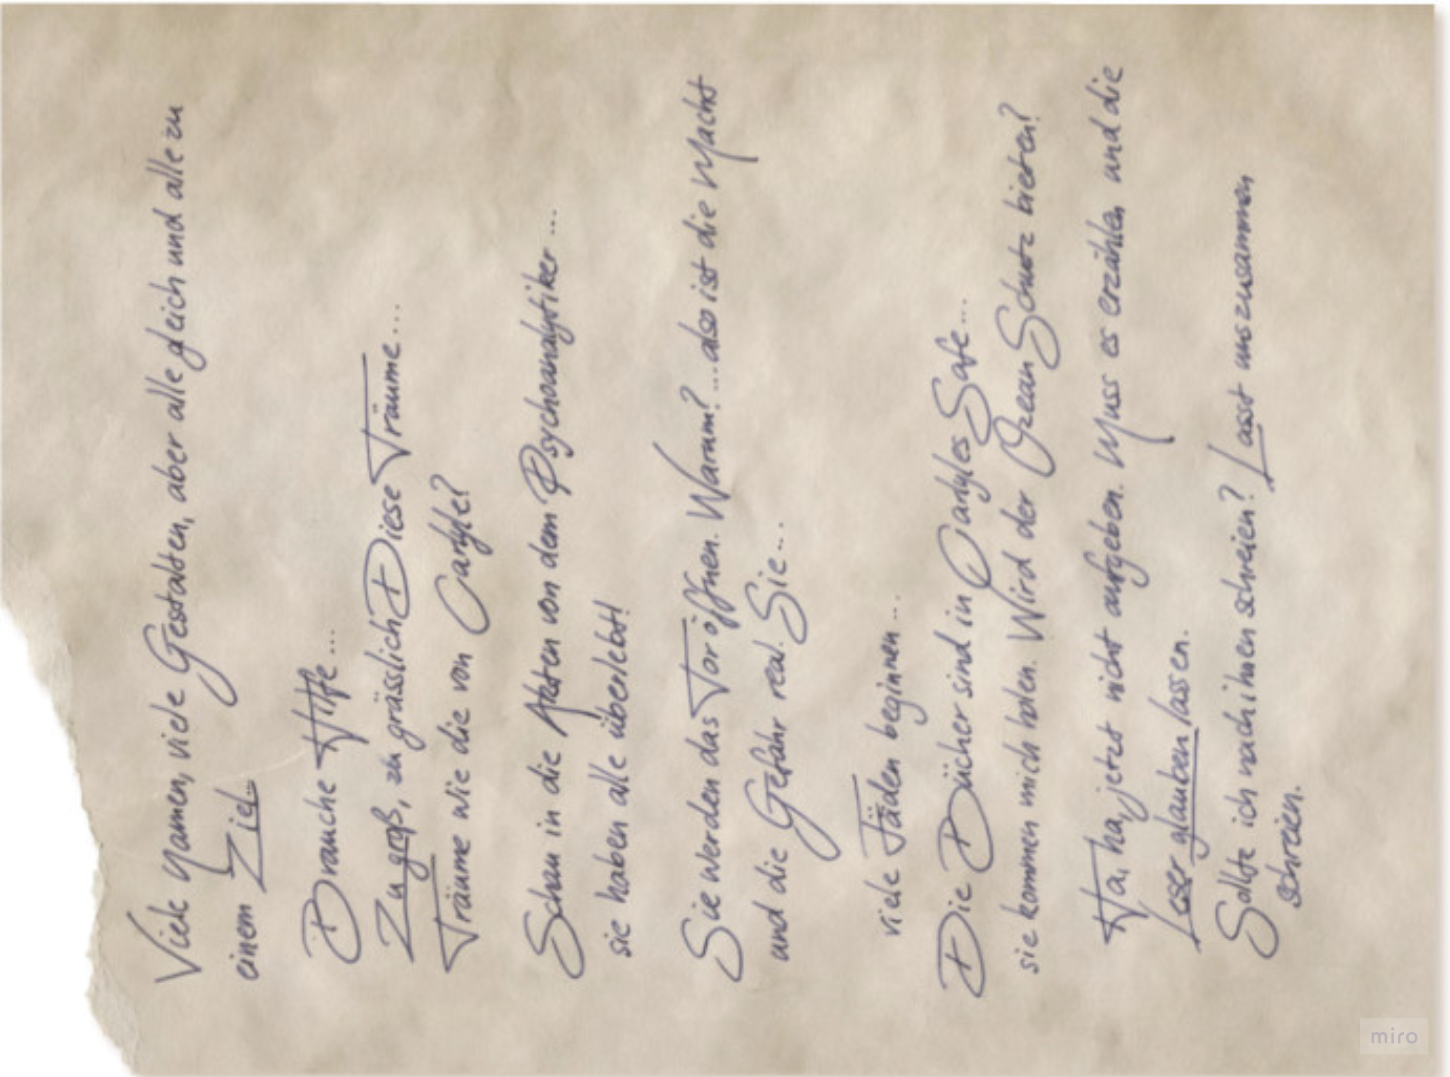 Viele Namen, viele Gestalten, aber alle gleich und alle zu
einem Ziel...
Brauche Hilfe...
Zu groß, zu grässlich Diese Träume...
Träume wie die von Carlyle?
Schau in die Akten von dem Psychoanalytiker...
sie haben alle überlebt!
Sie werden das Tor öffnen. Warum?...also ist die Macht
und die Gefahr real. Sie...
viele Fäden beginnen...
Die Bücher sind in Carlyles Safe...
sie kommen mich holen. Wird der Ozean Schutz bieten?
Ha, ha, jetzt nicht aufgeben. Muss es erzählen und die
Leser glauben lassen.
Sollte ich nach ihnen schreien? Lasst uns zusammen
schreien.
miro